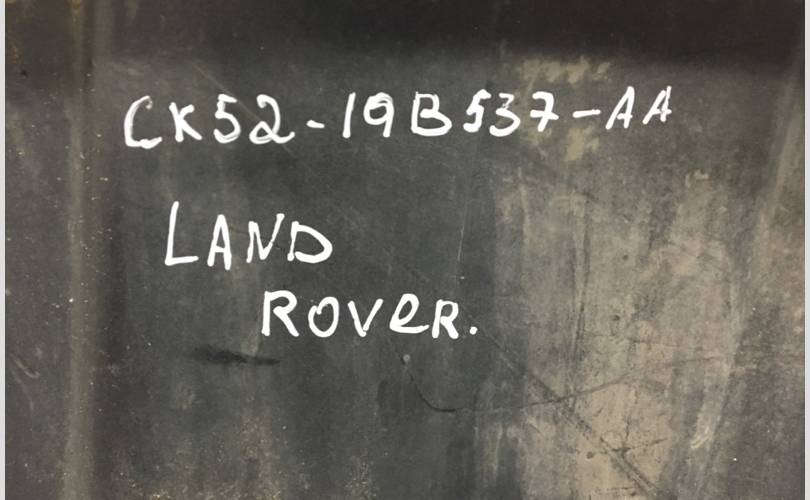 CK52-19B537-AA
LAND
ROVeR.